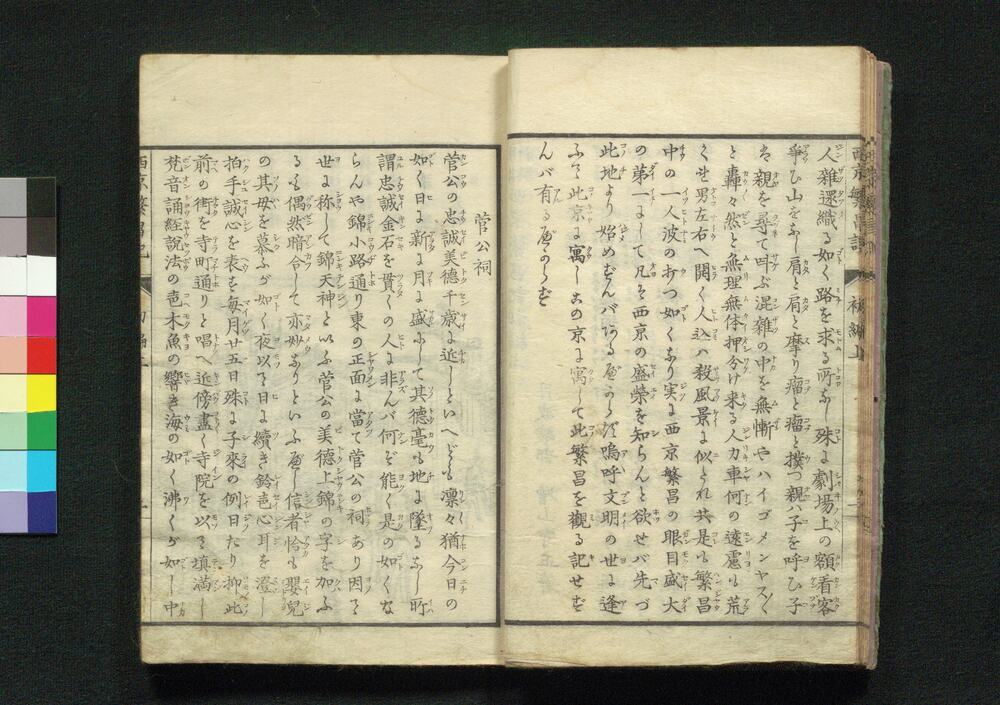 西京繁昌記 初編上
人雑還織る如く路を求る所なし殊に劇場上の額看客
争ひ山をなし肩と肩と摩り瘤と瘤と撲つ親ハ子を呼ひ子
は親を尋て叫ぶ混雑の中を無慚やハイゴメンヤス〱
と轟々然と無理無体押分け来る人力車何の遠慮も荒
くせ男左右へ開く人込ハ殺風景に似とれ共是も繁昌
中の一人波の打つ如くなり実に西京繁昌の眼目盛大
の第一にして凡そ西京の盛栄を知らんと欲せバ先づ
此地より始めずんバある可らず嗚呼文明の世に逢
ふて此京に寓し此京に寓して此繁昌を観る記せず
んバ有る可らず
菅公祠
菅公の忠誠美徳千歳に近しといへども凛々猶今日の
如く日に新に月に盛にして其徳毫も地に墜るなし所
謂忠誠金石を貫くの人に非んバ何ぞ能く是の如くな
らんや錦小路通り東の正面に當て菅公の祠あり因て
世に称して錦天神といふ菅公の美徳上錦の字を加ふ
るも偶然暗合して亦妙なりといふ可し信者恰も嬰児
の其母を慕ふが如く夜以て日に續き鈴音心耳を澄し
拍手誠心を表す毎月廿五日殊に子來の例日たり抑此
前の街を寺町通りと唱へ近傍盡く寺院を以て填満し
梵音誦経説法の音木魚の響き海の如く沸くが如し中
西京繁昌記